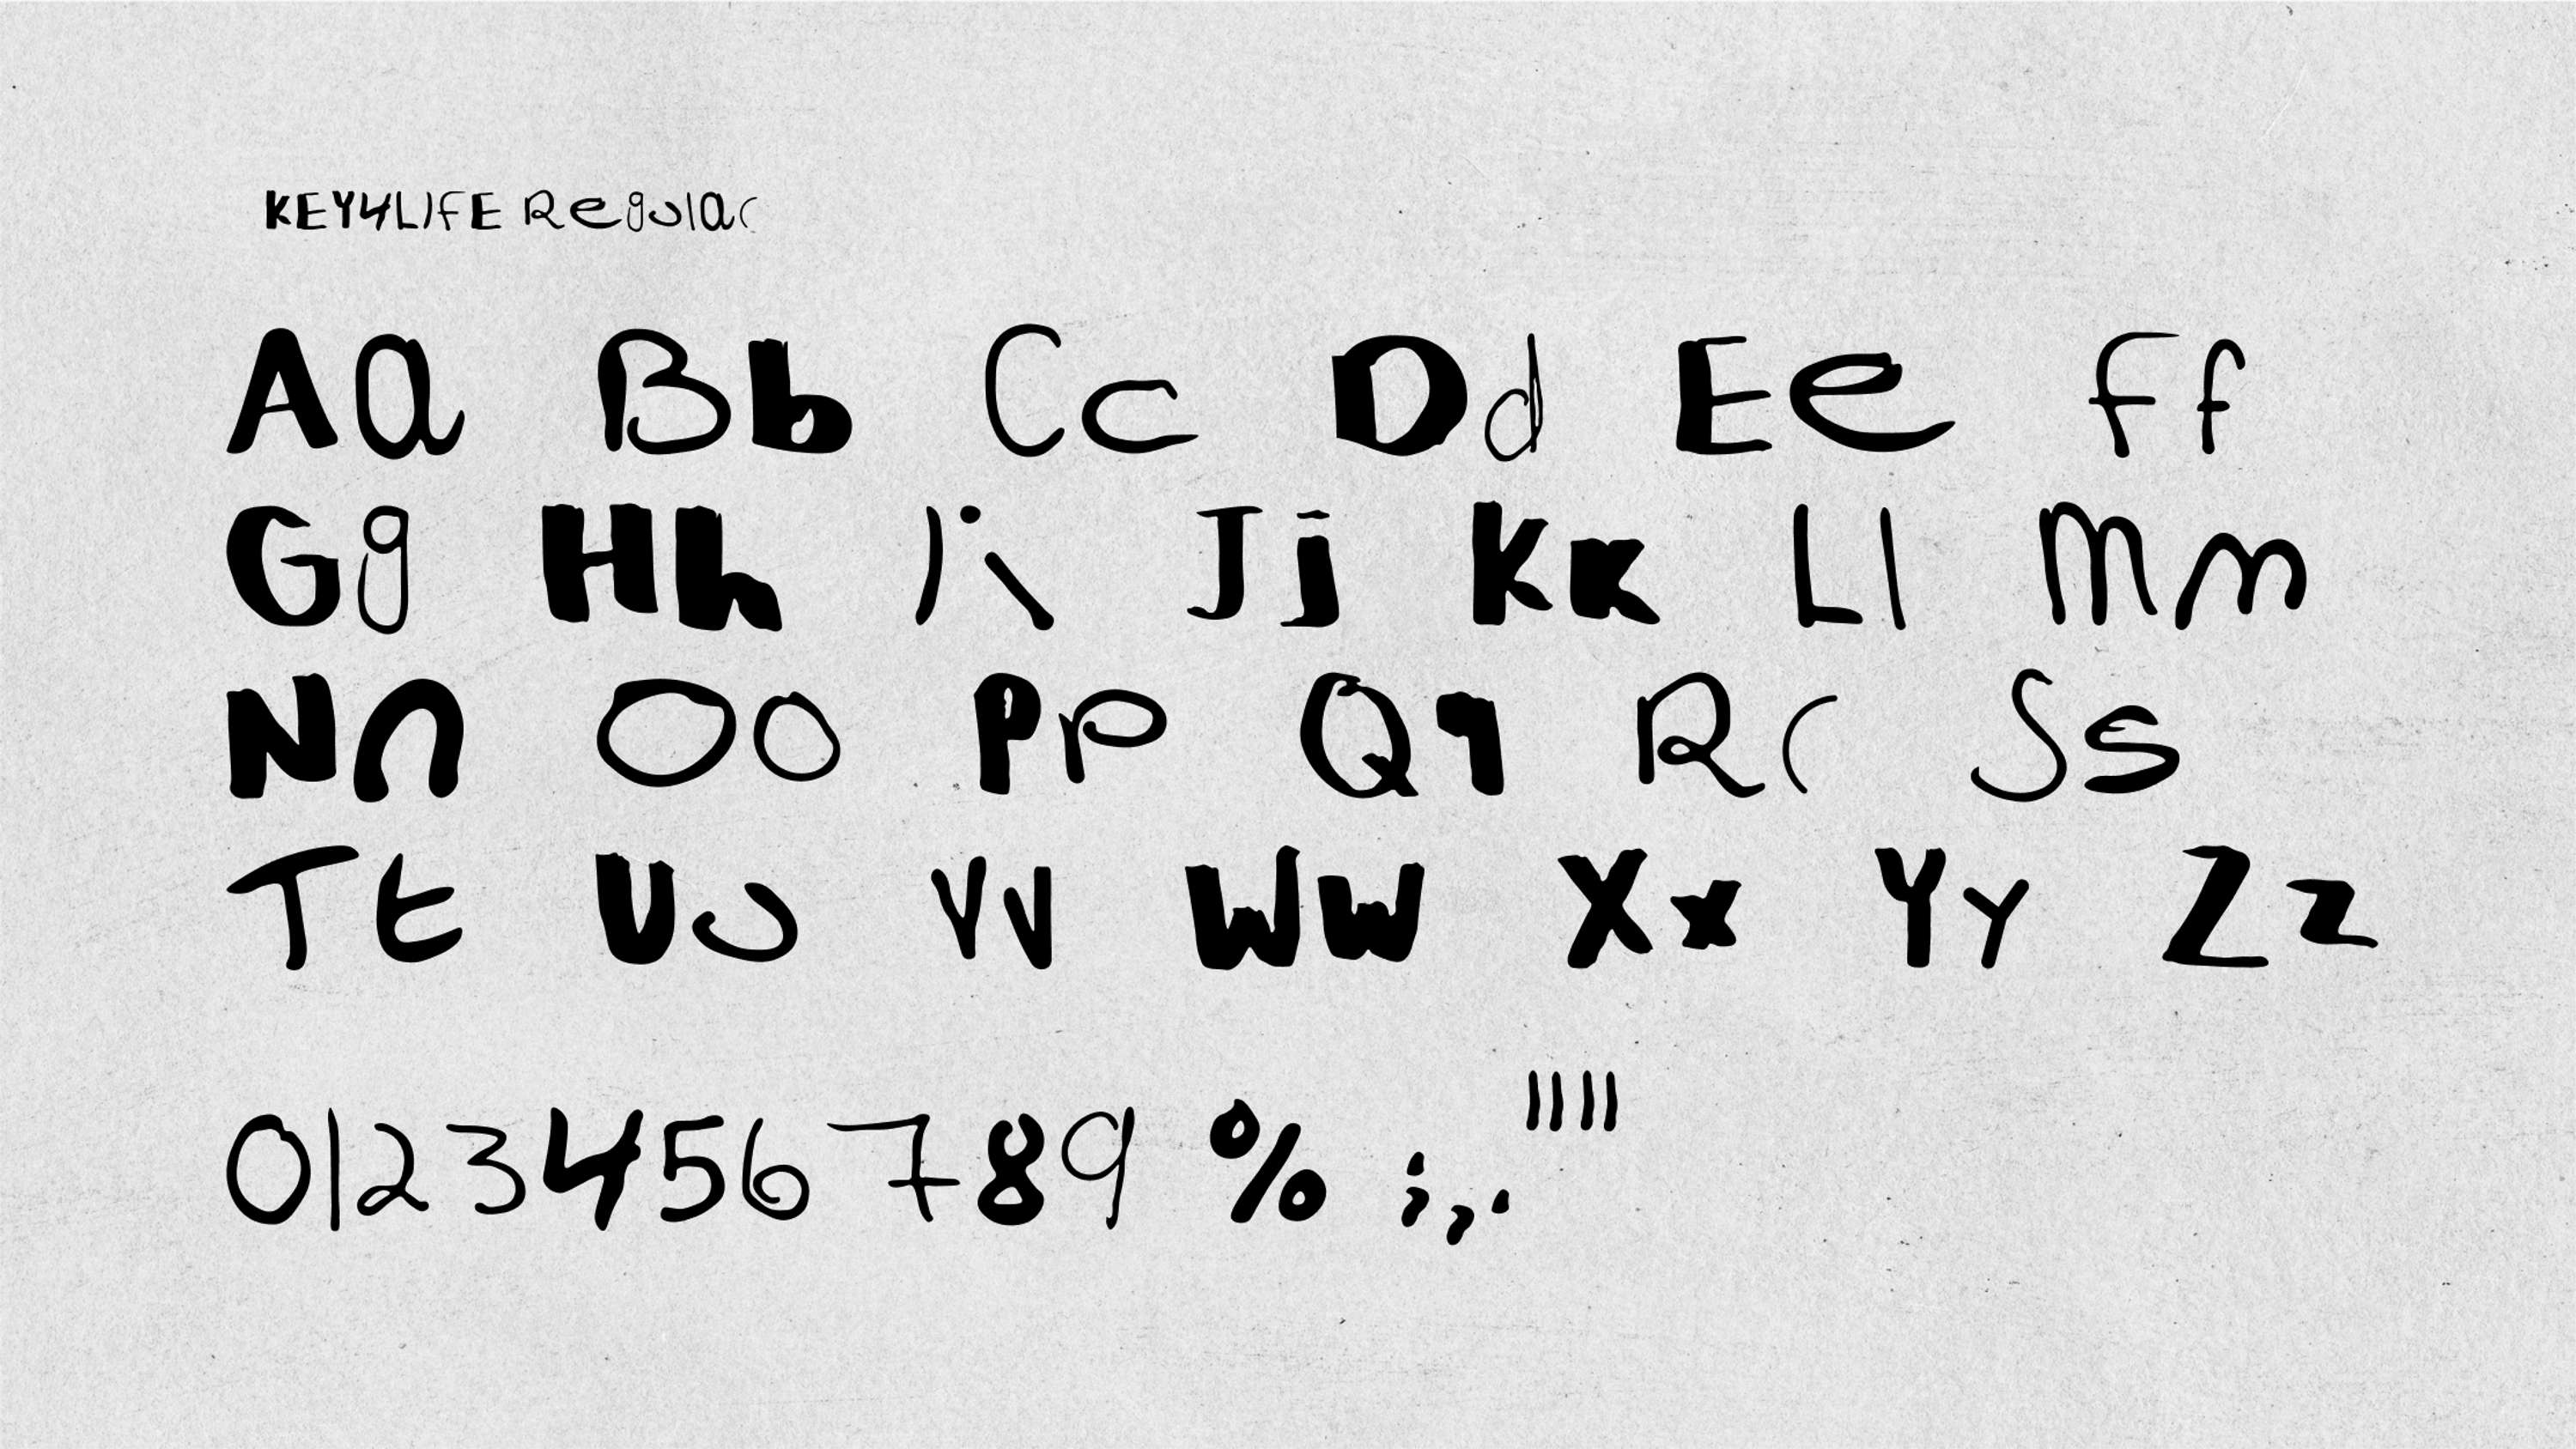 KEY4LIFE Regular
Aa Bb Cc Dd Ee Ff
Gg Hh Ii Jj Kk Ll Mm
Nn Oo Pp Qq Rr Ss
Tt Uu Vv Ww Xx Yy Zz
0123456789 % ;,. ""